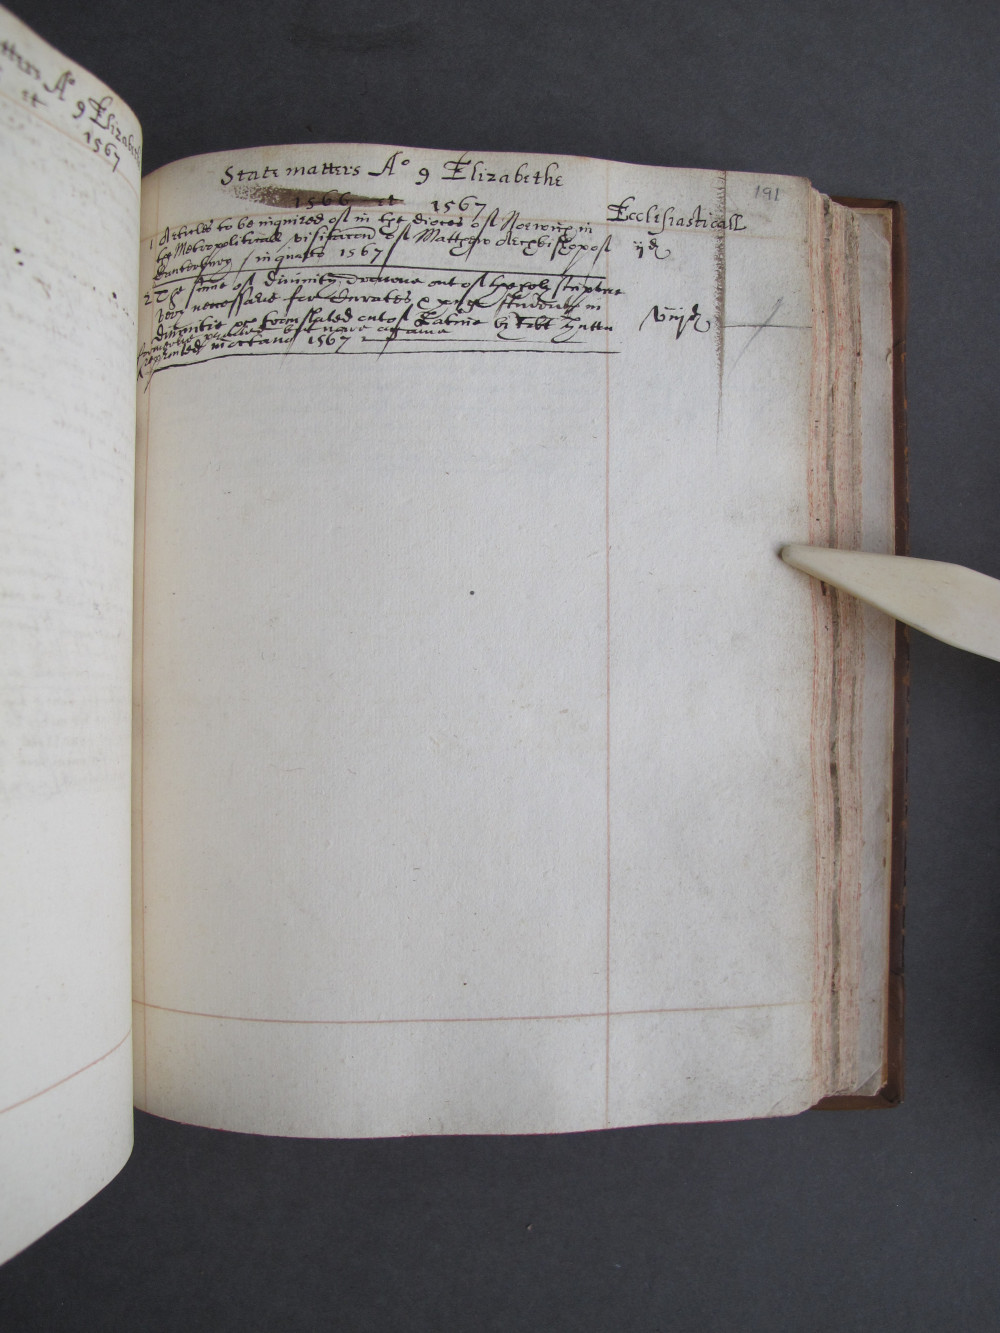 tters Ao 9 Elizabeth
et 1567
State matters Ao 9 Elizabethe
191
1566 et 1567
Ecclesiasticall
1 Articles to be inquired of in the dioces of Norwich in
the Metropoliticall visitacon of Matthew Archbishop of
Canterbury / in quarto 1567
ijd
2 The summe of divinity drawne out of the holy scripture
very necessarie for Curates & yonge studentes in
divinitie translated out of Latine by Robt Hutten
viijd
best nowe
Reprinted in octavo 1567